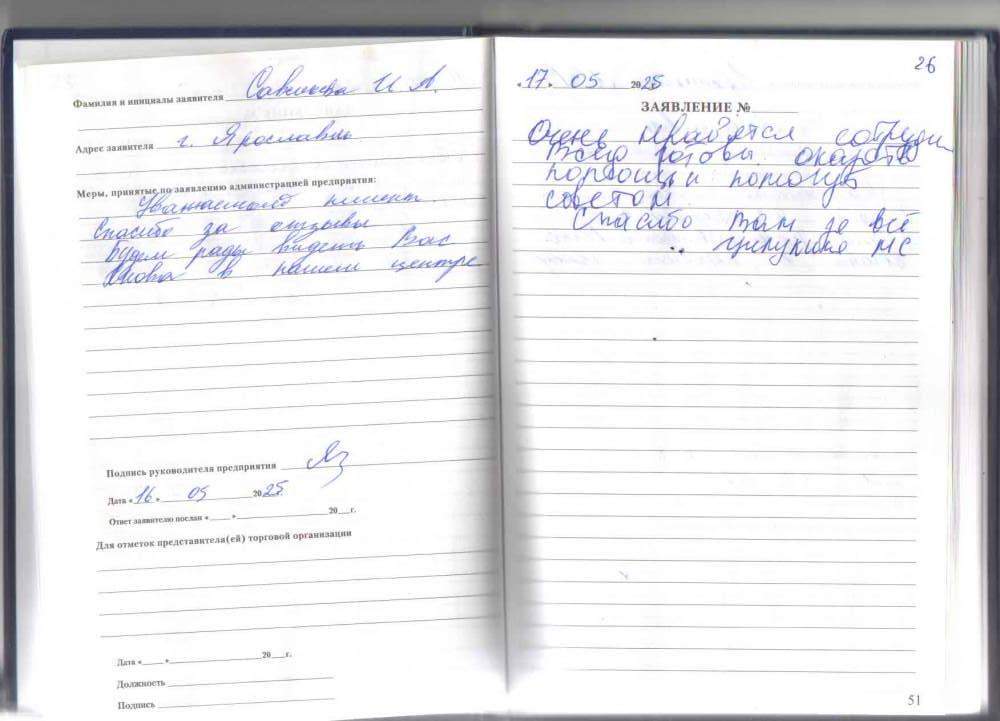 Фамилия и инициалы заявителя Савинова И А.
Адрес заявителя г. Ярославль
Меры, принятые по заявлению администрацией предприятия:
Уважаемый клиент.
Спасибо за отзывы
Будем рады видеть Вас
снова в нашем центре
Подпись руководителя предприятия
Дата «16» 05 2025
Ответ заявителю послан «____»____________ 20__г.
Для отметок представителя(ей) торговой организации
Дата «____»____________ 20__г.
Должность
Подпись
26
«17» 05 2025
ЗАЯВЛЕНИЕ №
Очень нравятся сотрудни
Всегд готовы оказать
помощь и помогут
советом.
Спасибо Вам за всё
МС
51